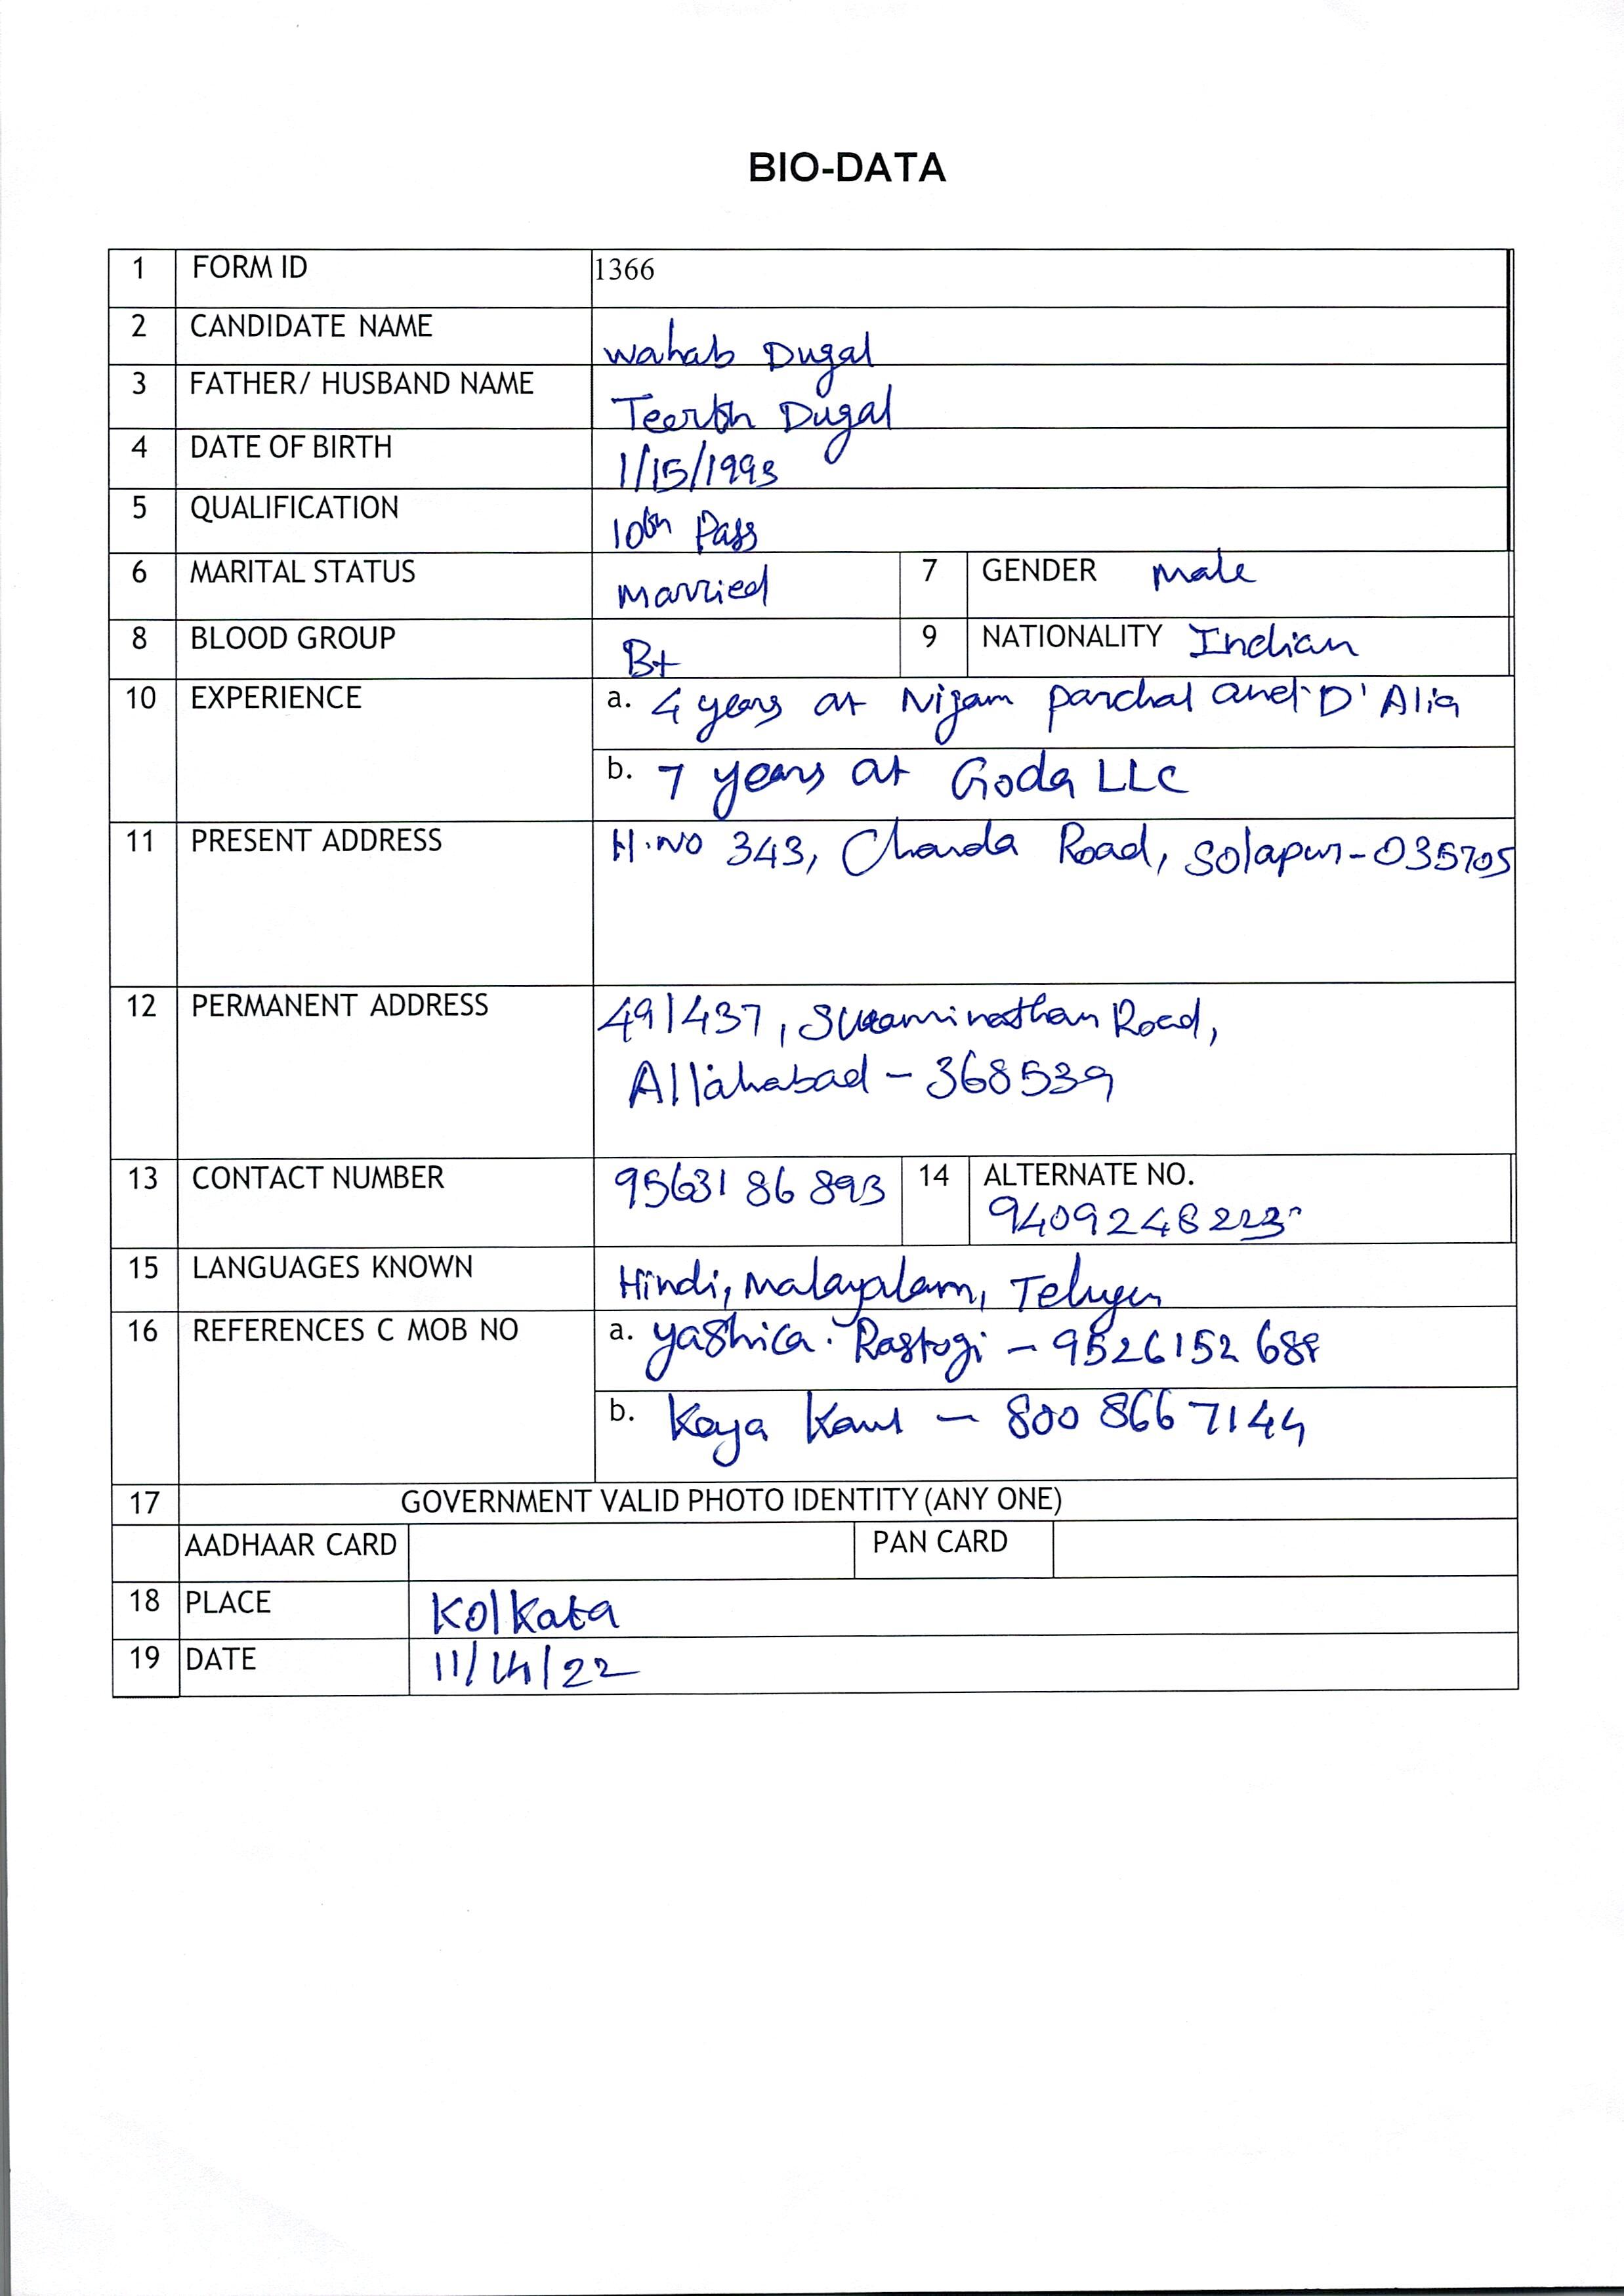 BIO-DATA
1 FORM ID 1366
2 CANDIDATE NAME Wahab Dugal
3 FATHER/ HUSBAND NAME Teerth Dugal
4 DATE OF BIRTH 1/15/1993
5 QUALIFICATION 10th Pass
6 MARITAL STATUS Married 7 GENDER Male
8 BLOOD GROUP B+ 9 NATIONALITY Indian
10 EXPERIENCE a. 4 years at Nijam Panchal and D'Alia
b. 7 years at Goda LLC
11 PRESENT ADDRESS H.NO 343, Chanda Road, Solapur-035705
12 PERMANENT ADDRESS 491437, Swaminathan Road,
Allahabad - 368539
13 CONTACT NUMBER 9563186893 14 ALTERNATE NO.
9409248223
15 LANGUAGES KNOWN Hindi, Malayalam, Telugu
16 REFERENCES C MOB NO a. Yashica Rastogi - 9526152688
b. Kaya Kaul - 8008667144
17 GOVERNMENT VALID PHOTO IDENTITY (ANY ONE)
AADHAAR CARD PAN CARD
18 PLACE Kolkata
19 DATE 11/14/22